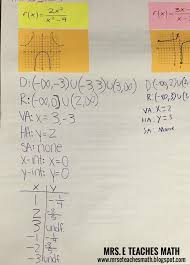 f(x)= 2x²/x²-9
f(x)= 3x-
D: (-∞,-3)∪(-3,3)∪(3,∞)
R: (-∞,0]∪(2,∞)
VA: x=3-3
HA: y=2
SA: none
x-int: x=0
y-int: y=0
x y
1 -1/4
2
3 undf
-1 -1/4
-2
-3 undf
D: (-∞,2)∪(
R: (-∞,3)∪(3
VA: x=2
HA: y=3
SA: None
MRS. E TEACHES MATH
www.mrseteachesmath.blogspot.com